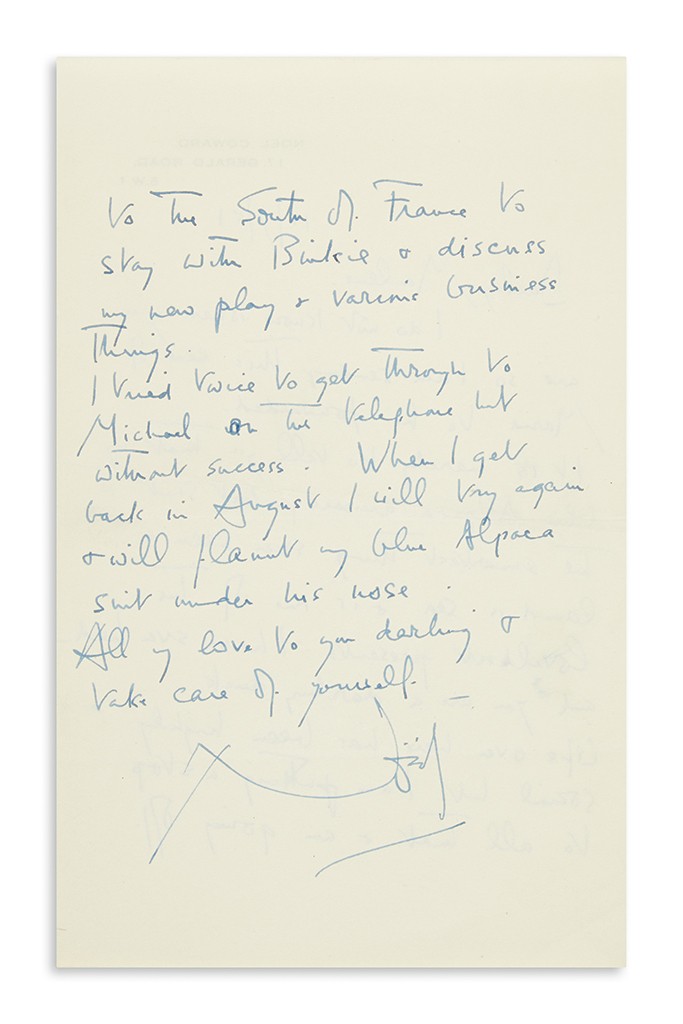 to the South of France to
stay with Binkie & discuss
my new play & various business
Things.
I tried twice to get through to
Michael on the telephone but
without success. When I get
back in August I will try again
& will flaunt my blue Alpaca
suit under his nose.
All my love to you darling &
take care of yourself. —
Noël